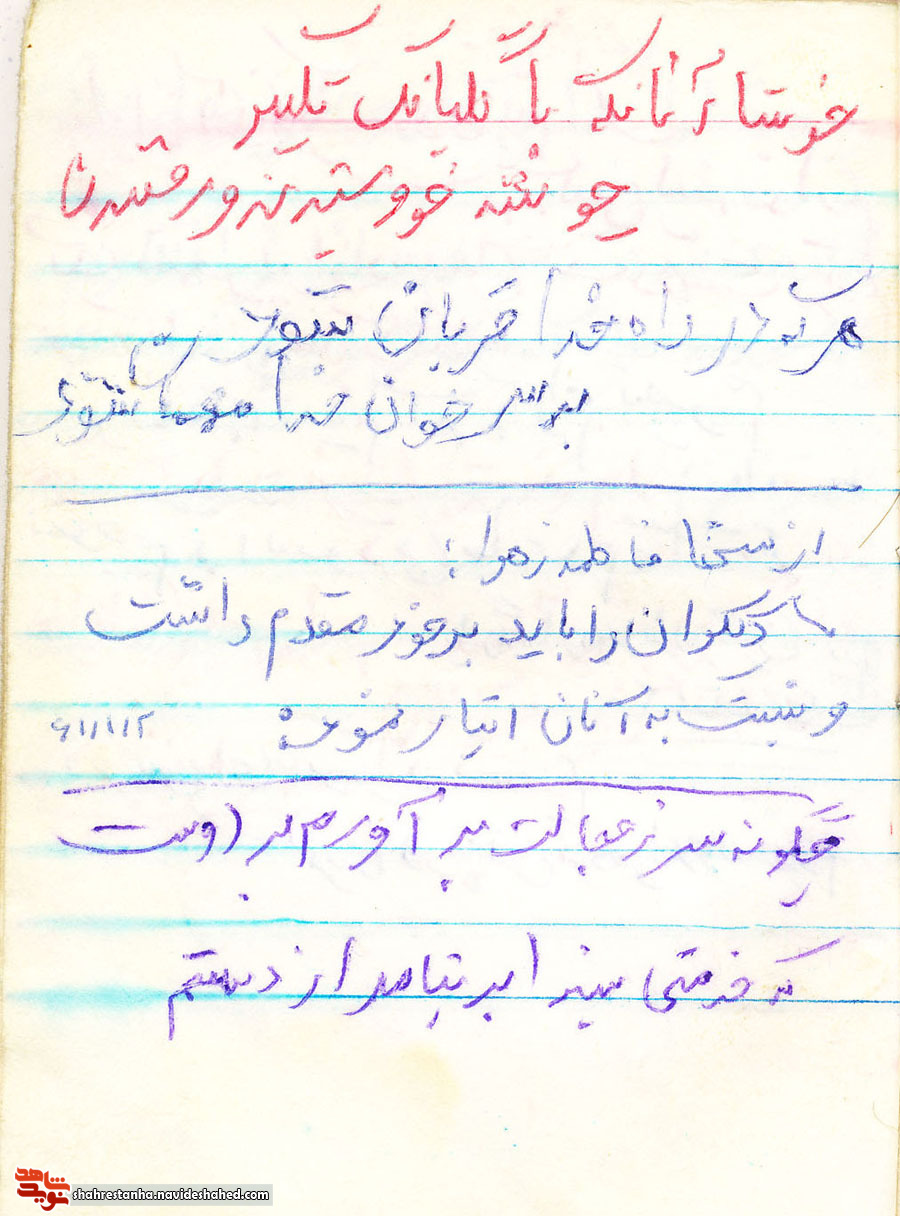 خوشا آنانکه با گلبانگ تکبیر
چو شده خروشیدند و رفتند
هر که در راه خدا قربان شود
بر سر خوان خدا مهمان شود
از سخنا فاطمه زهرا:
دیگران را باید بر خود مقدم داشت
و نسبت به آنان ایثار نمود.
۶۱/۱/۱۲
چگونه سر ز خجالت بر آورم بر دوست
که خدمتی بسزا بر نیامد از دستم
شاهد
نوید
shahrestanha.navideshahed.com